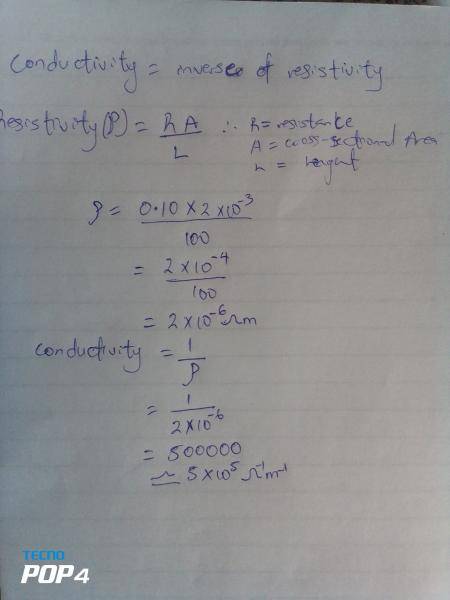 Conductivity = inverse of resistivity
Resistivity (ρ) = RA/L ∴ R = resistance
A = cross-sectional Area
L = lengent
ρ = 0.10 × 2 × 10⁻³/100
= 2 × 10⁻⁴/100
= 2 × 10⁻⁶ Ωm
Conductivity = 1/ρ
= 1/2 × 10⁻⁶
= 500000
= 5 × 10⁵ Ω⁻¹m⁻¹
TECNO
POP 4